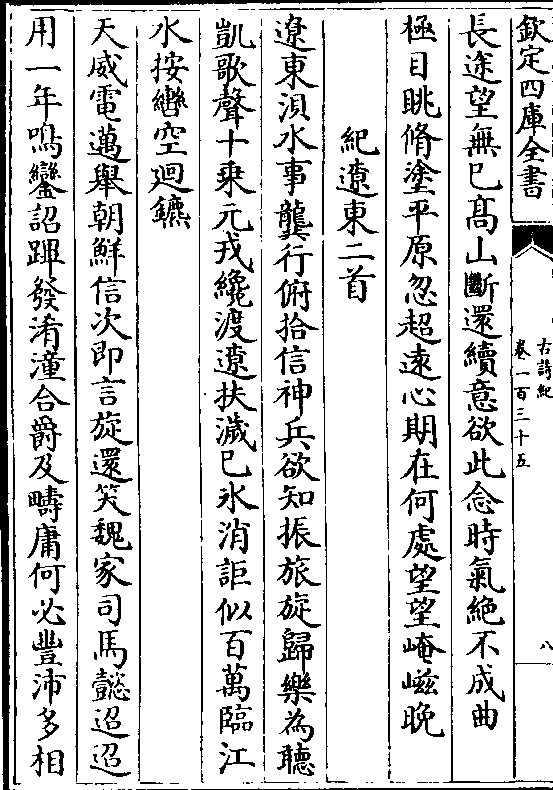 欽定四庫全書
古詩紀
卷一百三十五
八
長途望無已髙山斷還續意欲此念時氣絶不成曲
極目眺脩塗平原忽超遠心期在何處望望崦嵫晚
紀遼東二首
遼東浿水事龔行俯拾信神兵欲知振旅旋歸樂為聽
凱歌聲十乗元戎纔渡遼扶濊已氷消詎似百萬臨江
水按轡空迴鑣
天威電邁舉朝鮮信次即言旋還笑魏家司馬懿迢迢
用一年鳴鑾詔蹕發淆潼合爵及疇庸何必豐沛多相